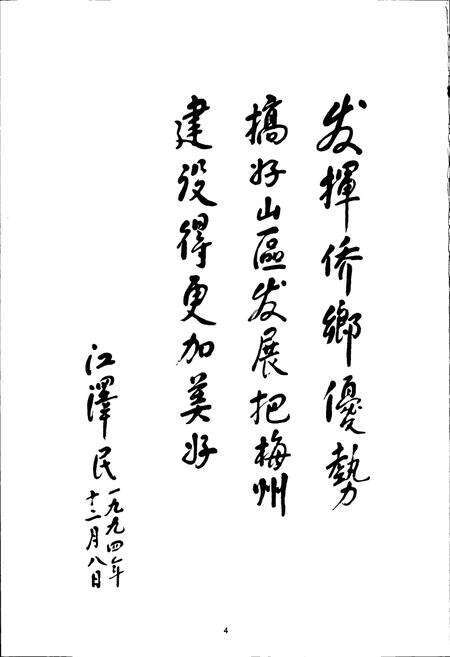 发揮侨鄉優勢
搞好山區发展把梅州
建设得更加美好
江澤民
一九九四年
十二月八日
4